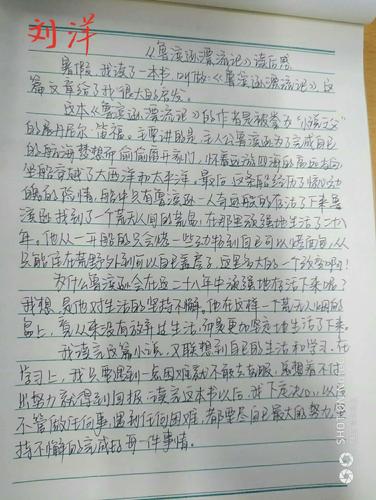 刘洋
《鲁滨逊漂流记》读后感
暑假,我读了一本书,叫做《鲁滨逊漂流记》,这
篇文章给了我很大的启发。
这本《鲁滨逊漂流记》的作者是被称为“小说之父”
的展丹尼尔·笛福。主要讲的是:主人公鲁滨逊为了完成自己
的航海梦想而偷偷离开家们,怀着远游四海的高远志向,
坐船穿越了大西洋和太平洋。最后,这条船经历了惊心动
魄的险情,船中只有鲁滨逊一人奇迹般的存活了下来鲁
滨逊找到了一个荒无人间的荒岛,在那里顽强地生活了二十八
年。他从一开始的只会烤一些动物到自己可以烤面包,从
只能住在荒野外到可以自己盖房子,这是多大的一个改变啊!
为什么鲁滨逊会在这二十八年中顽强地存活下来呢?
我想,是他对生活的坚持不懈。他在这样一个荒无人烟的
岛上,有从来没有放弃过生活,而是更加坚定地生活了下来。
我读完这篇小说,又联想到自己的生活和学习。在
学习上,我只要遇到一点困难就不敢去克服,总想着不付
出努力就得到回报。读完这本书以后,我下定决心,以后
不管做任何事,遇到任何困难,都要尽自己最大的努力,坚
持不懈的完成好每一件事情。
SHOT ON